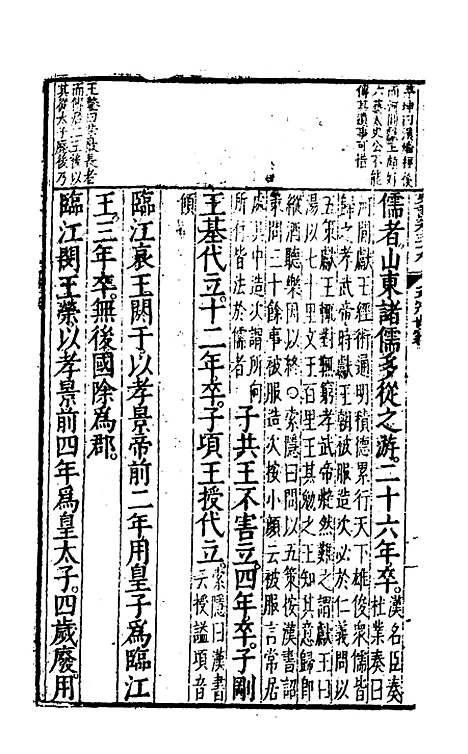 茅坤曰漢儒擇後
而河間獻王顧好
六藝太史公不能
傳其遺事可惜
儒者。山東諸儒多從之游。二十六年卒。漢名臣奏
杜業奏曰
河間獻王經術通明積德累行天下雄俊衆儒皆
歸之孝武帝時獻王朝被服造次必於仁義問以
五策獻王輙對輙窮孝武帝艴然難之謂獻王曰
湯以七十里文王百里王其勉之王知其意歸即
縱酒聽樂因以終○索隱曰問以五策按漢書詔
策問三十餘事被服造次按小顏云被服言常居
處其中造次謂所向
所行皆法於儒者
子共王不害立。四年卒。子剛
王基代立。十二年卒。子頃王授代立。索隱曰漢書
云授謚頃音
傾
臨江哀王閼于。以孝景帝前二年用皇子為臨江
王。三年卒。無後國除為郡。
王鏊曰榮最長者
而傳居二王後以
其爲太子廢後乃
臨江閔王榮。以孝景前四年為皇太子。四歲廢。用